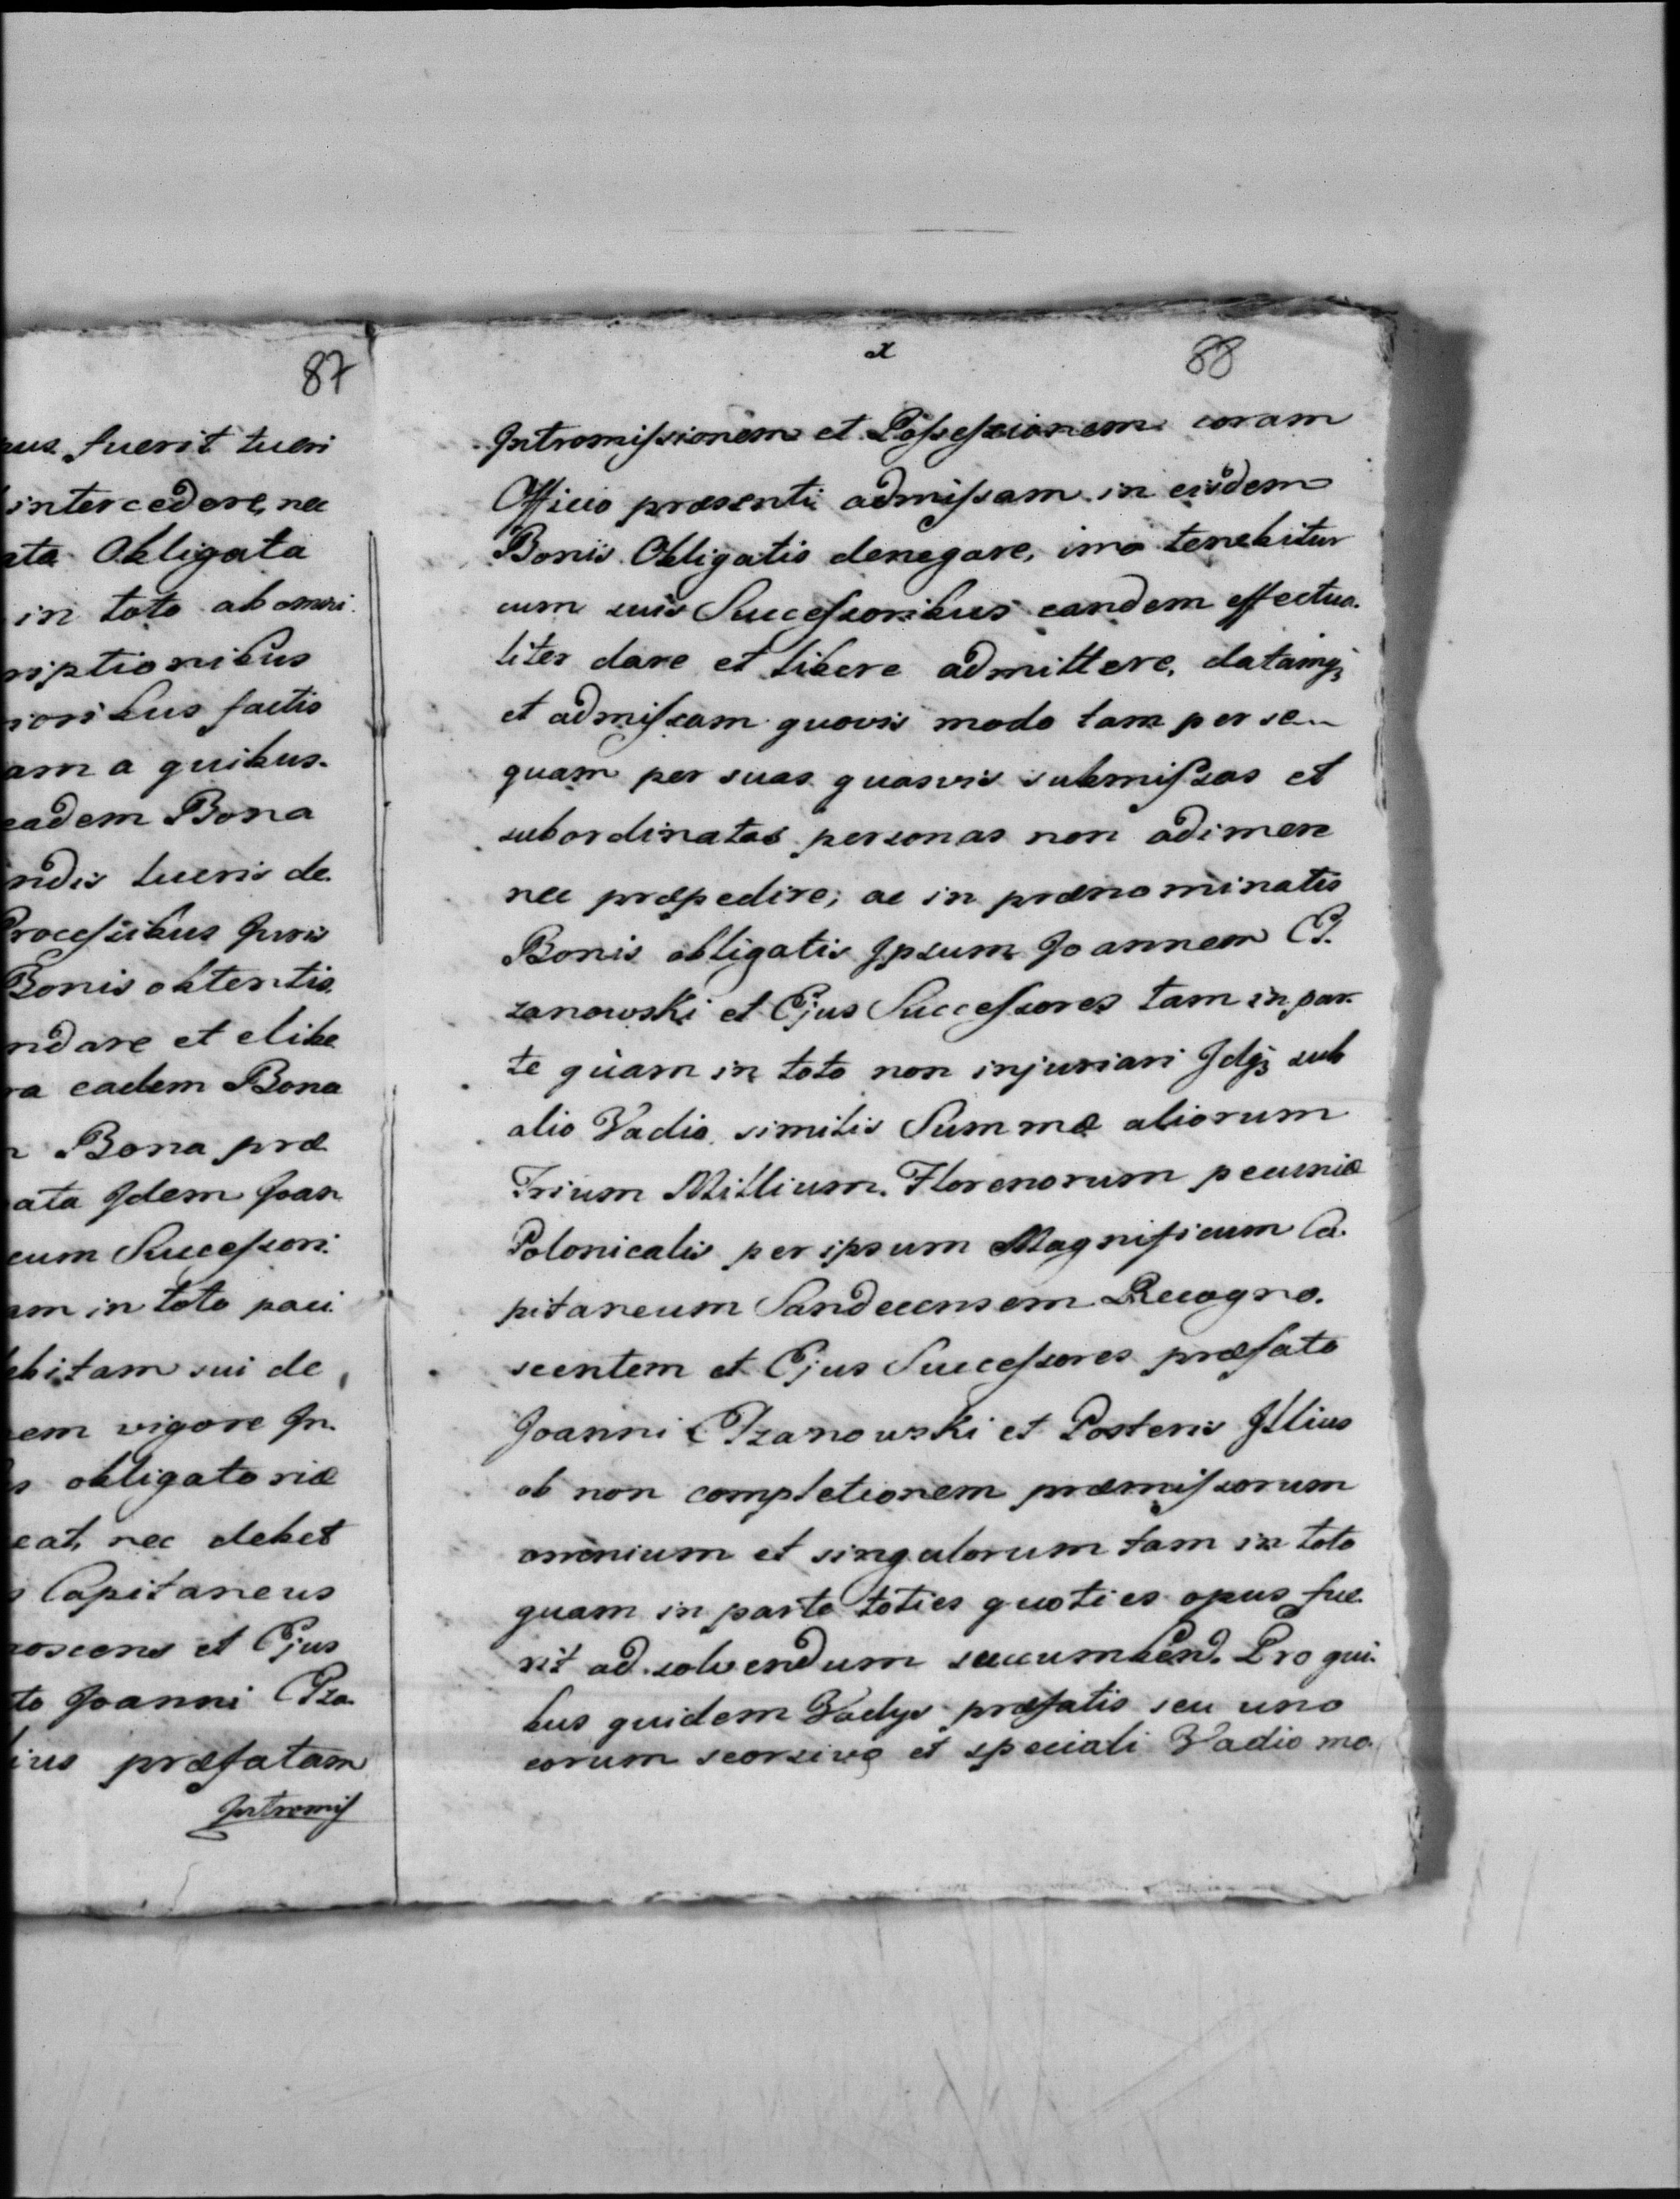 87
us fuerit tueri
intercedere, nec
ata Obligata
in toto ab omni
riptionibus
rioribus factis
am a quibus
eadem Bona
ndis tueris de
Processibus Juris
Bonis obtentis
ndare et elibe
ra eadem Bona
n Bona præ
ata Idem Joan
cum Successori
am in toto paci
ebitam sui de
em vigore In
s obligatoriæ
eat, nec debet
s Capitaneus
noscens et Ejus
to Joanni Pza
ius præfatam
Intromis
x
88
Intromissionem et Possessionem coram
Officio præsenti admissam in eisdem
Bonis Obligatis denegare, imo tenebitur
cum suis Successoribus eandem effectua
liter dare et libere admittere, datamq;
et admissam quovis modo tam per se
quam per suas quasvis submissas et
subordinatas personas non adimere
nec præpedire; ac in prænominatis
Bonis obligatis Ipsum Joannem P.
zanowski et Ejus Successores tam in par
te quam in toto non injuriari Idq; sub
alio Vadio similis Summæ aliorum
Trium Millium Florenorum pecuniæ
Polonicalis per ipsum Magnificum Ca
pitaneum Sandecensem Recogno.
scentem et Ejus Successores præfato
Joanni Pzanowski et Posteris Illius
ob non completionem præmissorum
omnium et singulorum tam in toto
quam in parte toties quoties opus fue
rit ad solvendum succumbend. Pro qui
bus quidem Vadys præfatis seu uno
eorum seorsivo et speciali Vadio mo